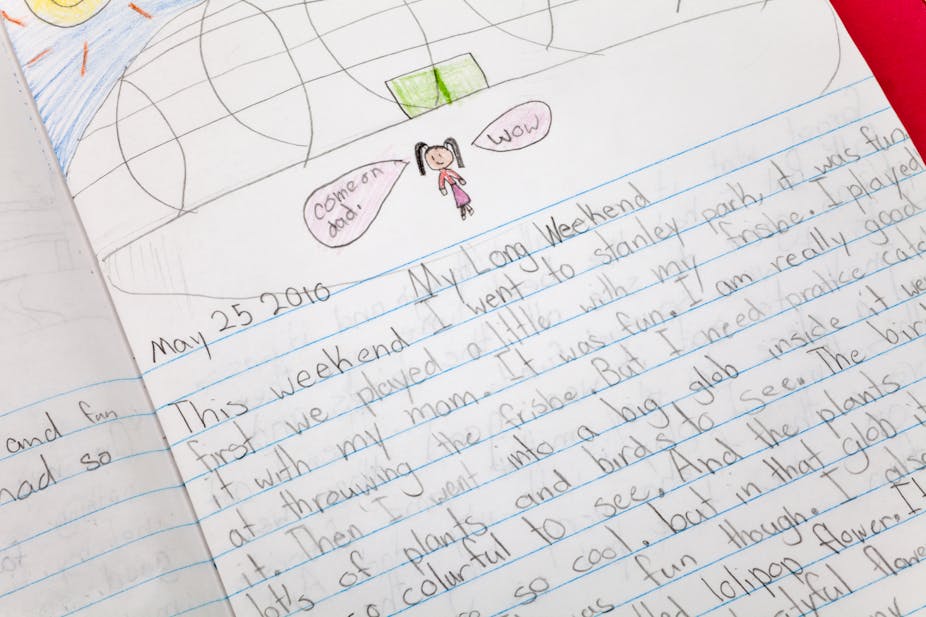 wow
come on
dad.
My Long Weekend
May 25 2010
This weekend I went to stanley park, it was fun.
first we played a little with my frisbe. I played
it with my mom. It was fun. I am really good
at threuwing the frisbe. But I need pratice catc
it. Then I went into a big glob inside it we
lot's of plants and birds to see. The bir
so colurful to see. And the plants
so cool. but in that glob it
was fun though. I also
lolipop flower.
and fun
had so